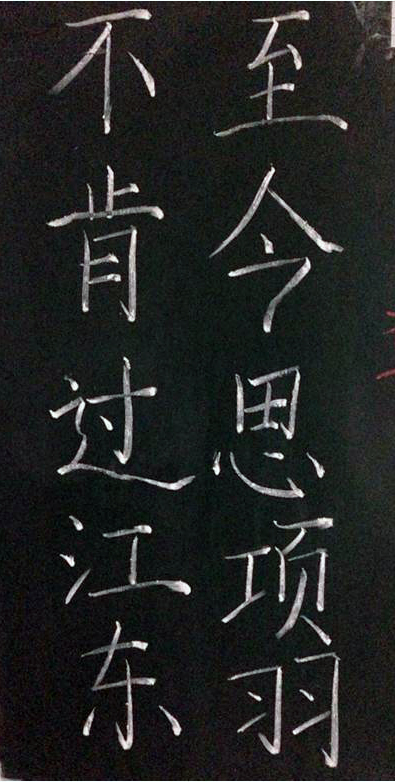 至今思项羽
不肯过江东